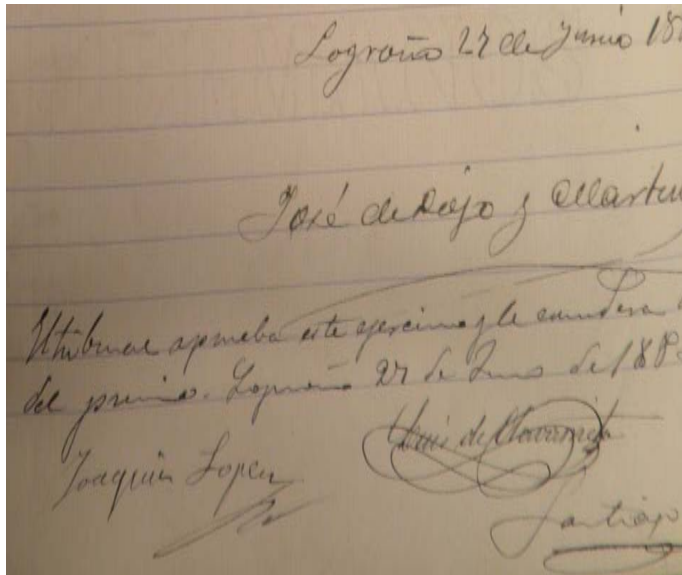 Logroño 27 de Junio 18
José de Rojo y Martin
El tribunal aprueba este ejercicio y le considera
del premio. Logroño 27 de Junio de 188
Luis de
Joaquin Lopez
Santiago